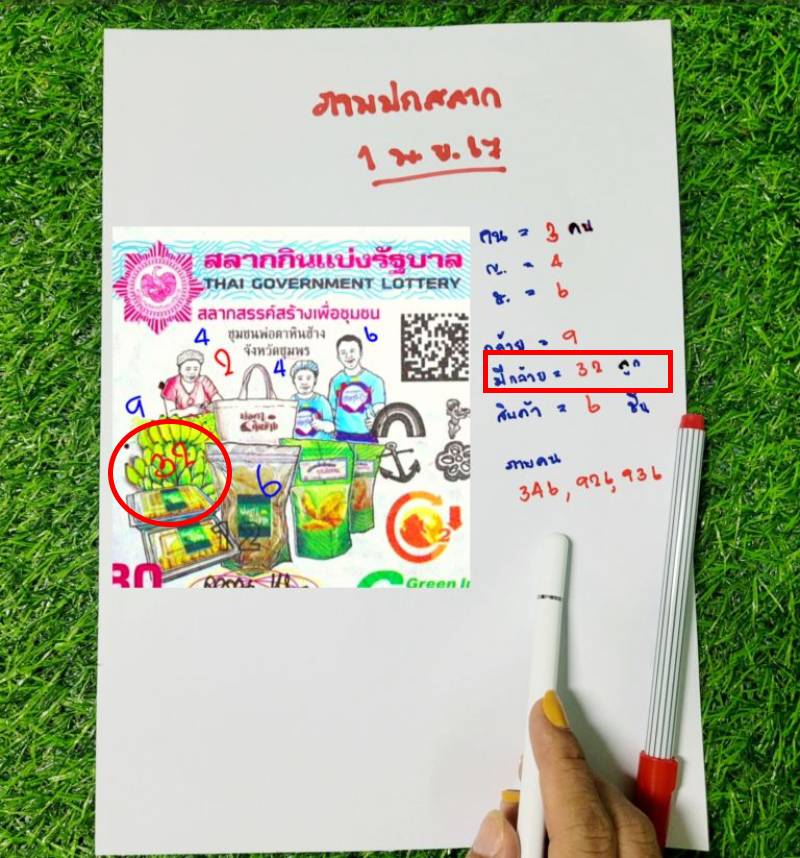 ภาพปกสลาก
1 พ.ย. 67
สลากกินแบ่งรัฐบาล
THAI GOVERNMENT LOTTERY
สลากสรรค์สร้างเพื่อชุมชน
ชุมชนพ่อตาหินช้าง
จังหวัดชุมพร
4
2
4
6
9
32
6
2
22
30
Green
คน = 3 คน
ญ. = 4
ช. = 6
กล้วย = 9
มีกล้วย = 32 ลูก
สินค้า = 6 ชิ้น
ภาพคน
346, 926, 936